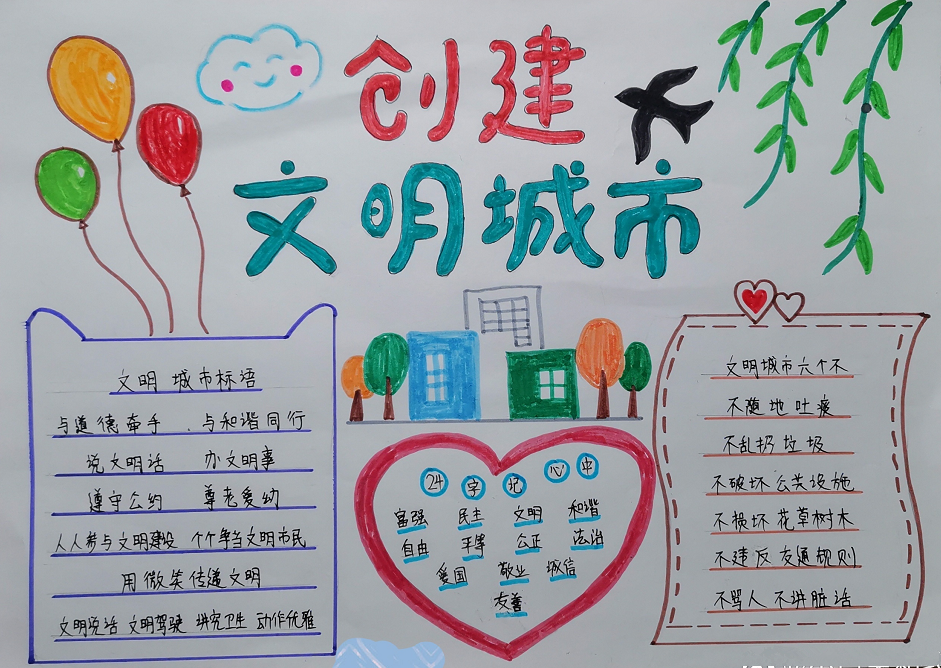 创建
文明城市
文明 城市标语
与道德牵手 . 与和谐同行
说文明话 办文明事
遵守公约 尊老爱幼
人人参与文明建设 个个争当文明市民
用微笑传递文明
文明说话 文明驾驶 讲究卫生 动作优雅
24字记心中
富强 民主 文明 和谐
自由 平等 公正 法治
爱国 敬业 诚信
友善
文明城市六个不
不随地吐痰
不乱扔垃圾
不破坏公共设施
不损坏花草树木
不违反交通规则
不骂人不讲脏话